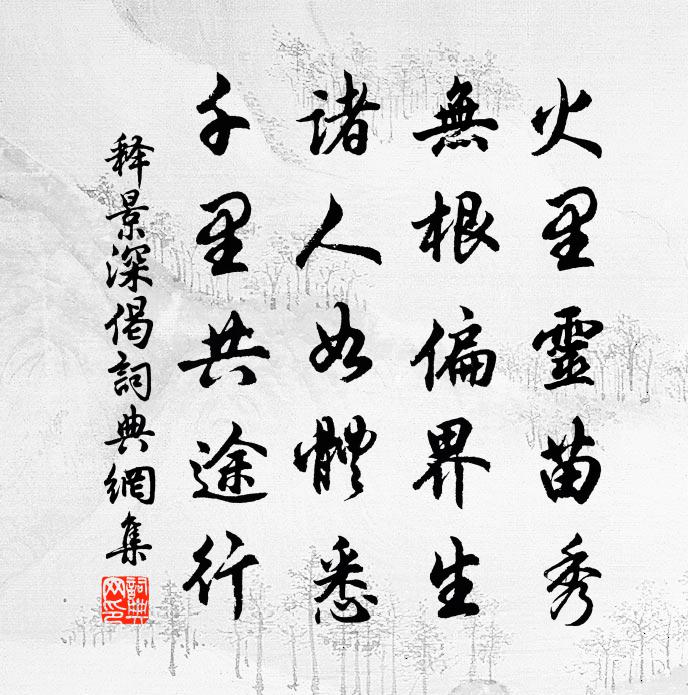 火里靈苗秀
無根偏界生
諸人如體悉
千里共途行
释景深偈詞典網集
詞典网印